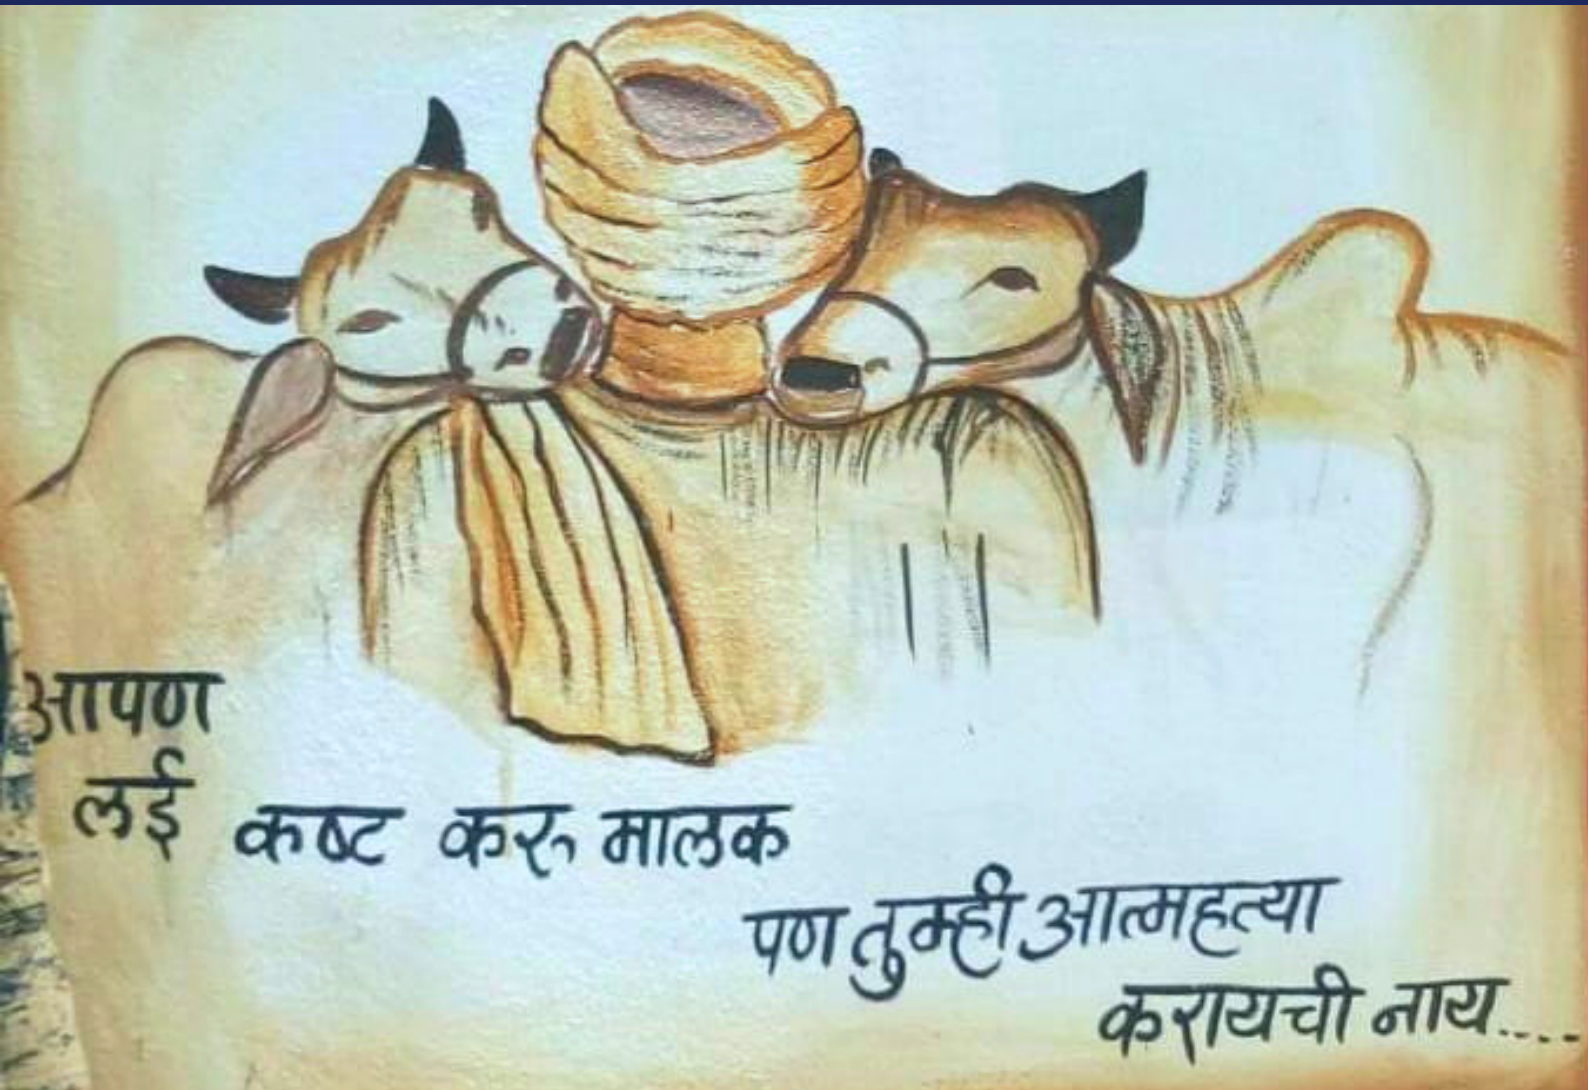 आपण
लई कष्ट करू मालक
पण तुम्ही आत्महत्या
करायची नाय....